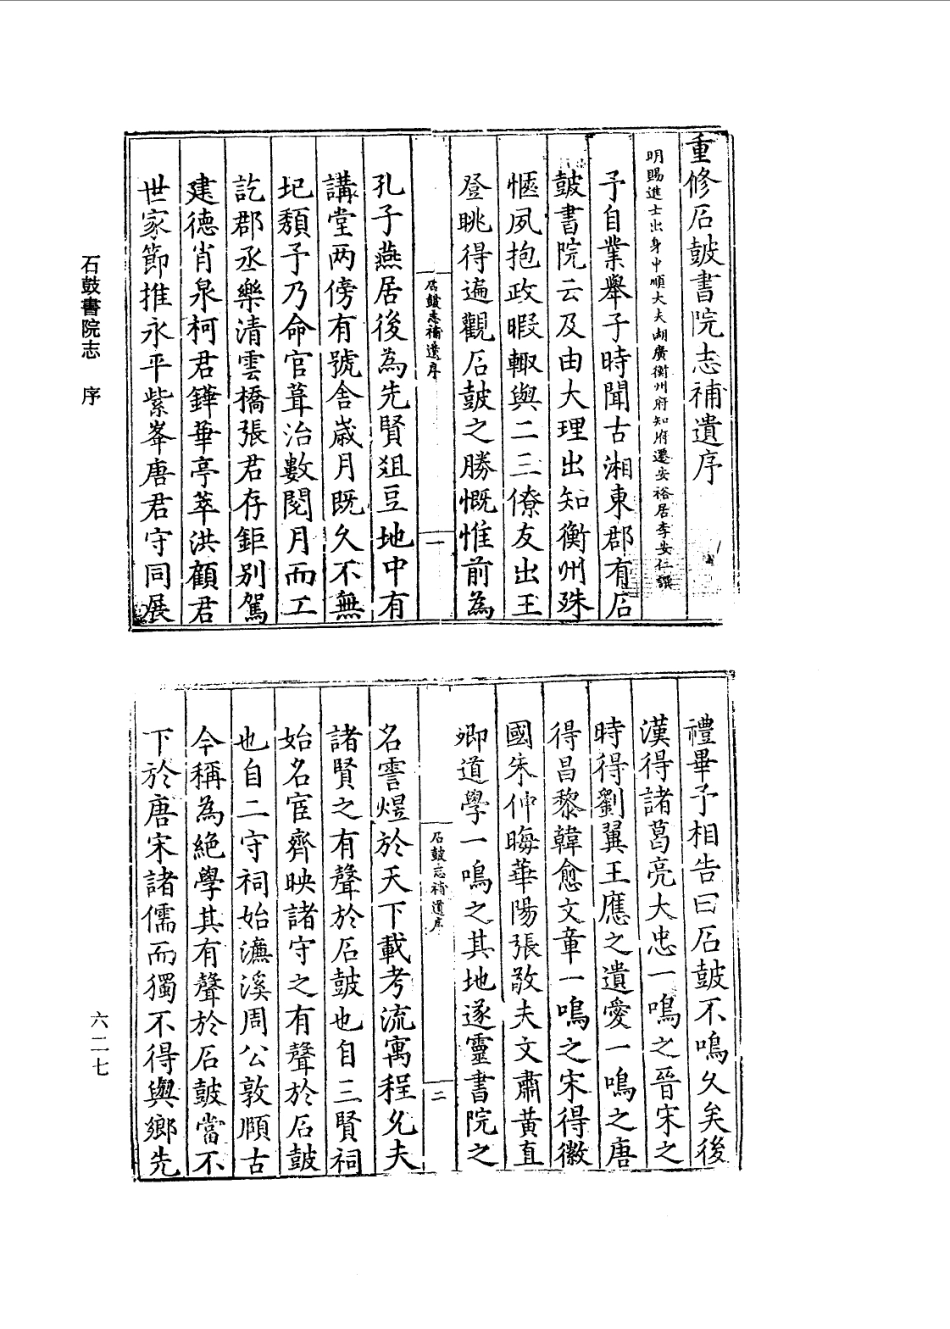 重修石皷書院志補遺序
明賜進士出身中順大夫湖廣衡州府知府遷安裕居李安仁譔
予自業舉子時聞古湘東郡有石
皷書院云及由大理出知衡州殊
愜夙抱政暇輙與二三僚友出王
登眺得遍觀石皷之勝慨惟前為
石皷志補遺序
一
孔子燕居後為先賢爼豆地中有
講堂两傍有號舍嵗月既久不無
圮頽予乃命官葺治數閱月而工
訖郡丞樂清雲橋張君存鉅别駕
建德肖泉柯君鏵華亭萃洪顧君
世家節推永平紫峯唐君守同展
禮畢予相告曰石皷不鳴久矣後
漢得諸葛亮大忠一鳴之晉宋之
時得劉翼王應之遺愛一鳴之唐
得昌黎韓愈文章一鳴之宋得徽
國朱仲晦華陽張敬夫文肅黄直
卿道學一鳴之其地遂靈書院之
石皷志補遺序
二
名霅煜於天下載考流寓程允夫
諸賢之有聲於石皷也自三賢祠
始名宦齊映諸守之有聲於石皷
也自二守祠始濂溪周公敦頤古
今稱為絶學其有聲於石皷當不
下於唐宋諸儒而獨不得與鄉先
石鼓書院志 序
六二七